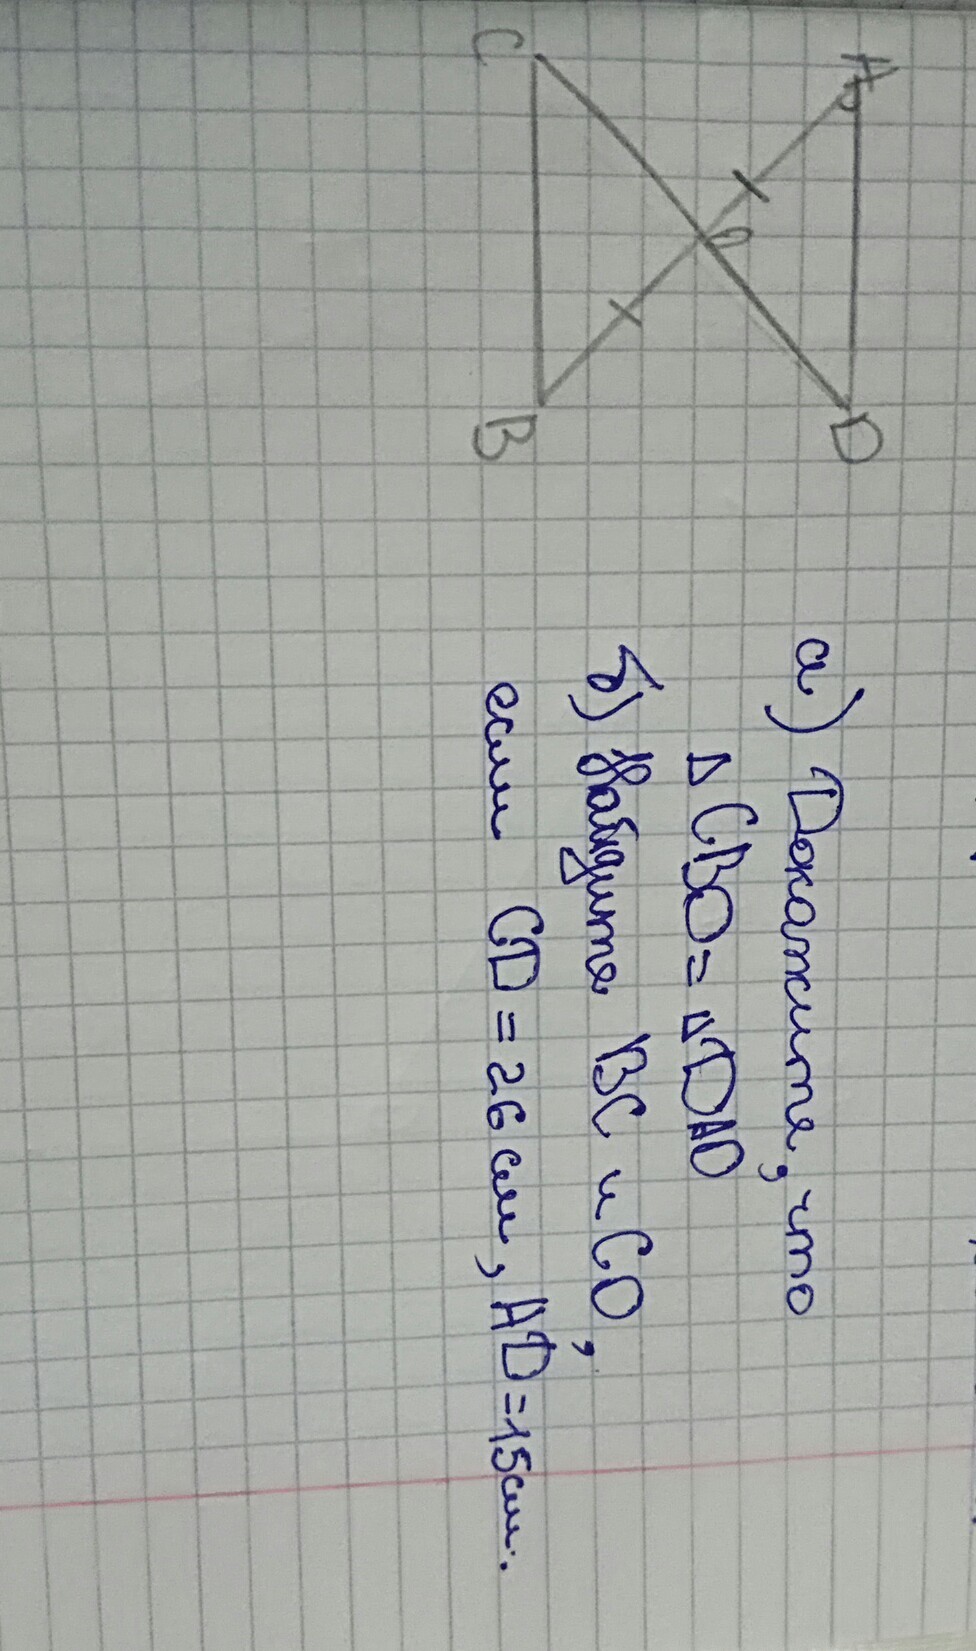 A
D
O
C
B
а) Докажите, что
Δ CBO = Δ DAO
б) Найдите BC и CO,
если CD = 26 см, AD = 15 см.